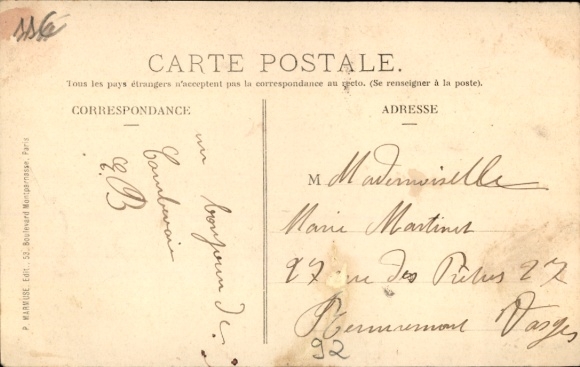 556
CARTE POSTALE.
Tous les pays étrangers n'acceptent pas la correspondance au recto. (Se renseigner à la poste).
CORRESPONDANCE
un bonjour de
Courbevoie
E. B
ADRESSE
M Mademoiselle
Marie Martinet
27 rue des Prêtres 27
Remiremont Vosges
92
P. MARMUSE, Edit., 53, Boulevard Montparnasse, Paris